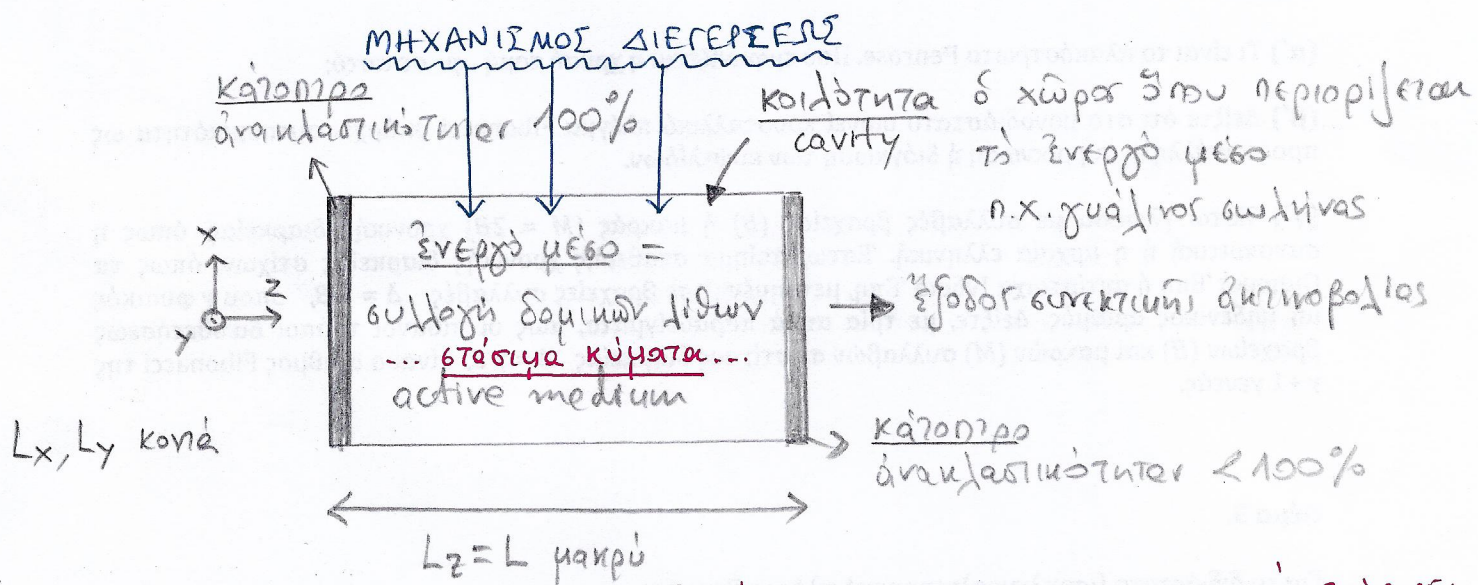 ΜΗΧΑΝΙΣΜΟΣ ΔΙΕΓΕΡΣΕΩΣ
κάτοπτρο
ἀνακλαστικότητας 100%
κοιλότητα ὁ χῶρος ὅπου περιορίζεται
cavity
τὸ ἐνεργό μέσο
π.χ. γυάλινος σωλήνας
x
z
y
ἐνεργό μέσο =
συλλογή δομικῶν λίθων
... στάσιμα κύματα...
active medium
ἔξοδος συνεκτικῆς ἀκτινοβολίας
Lx, Ly κοντά
κάτοπτρο
ἀνακλαστικότητας <100%
Lz = L μακρύ